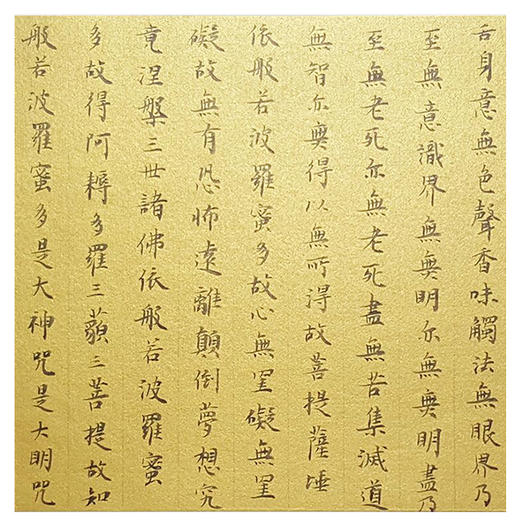 舌身意無色聲香味觸法無眼界乃
至無意識界無無明尓無無明盡乃
至無老死尓無老死盡無苦集滅道
無智尓無得以無所得故菩提薩埵
依般若波羅蜜多故心無罣礙無罣
礙故無有恐怖遠離顛倒夢想究
竟涅槃三世諸佛依般若波羅蜜
多故得阿耨多羅三藐三菩提故知
般若波羅蜜多是大神咒是大明咒